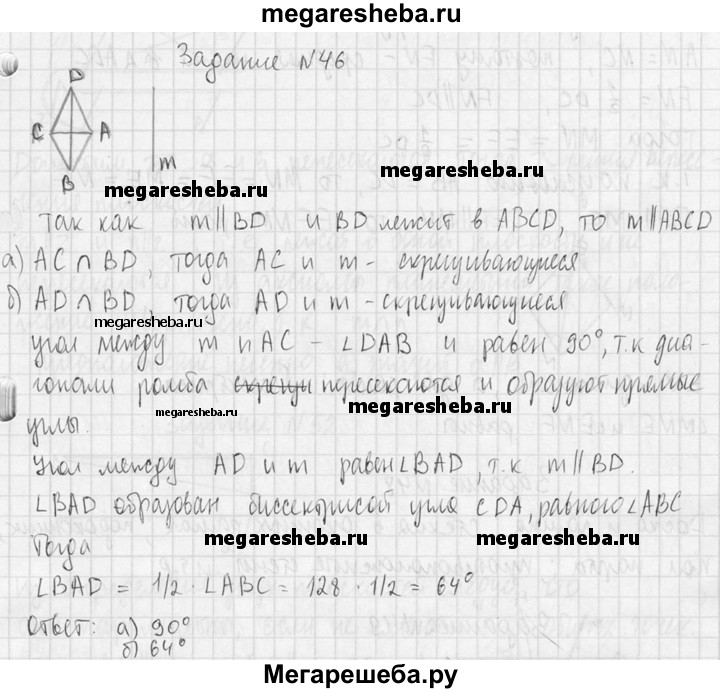 megaresheba.ru
Задание №46
D
C A
B
m
megaresheba.ru megaresheba.ru
так как m||BD и BD лежит в ABCD, то m||ABCD
а) AC ∩ BD, тогда AC и m - скрещивающиеся
б) AD ∩ BD, тогда AD и m - скрещивающиеся
megaresheba.ru
угол между m и AC - ∠DAB и равен 90°, т.к диа-
гонали ромба скрещи пересекаются и образуют прямые
megaresheba.ru megaresheba.ru
углы.
Угол между AD и m равен ∠BAD, т.к m||BD.
∠BAD образован биссектрисой угла CDA, равного ∠ABC
Тогда
megaresheba.ru megaresheba.ru
∠BAD = 1/2 · ∠ABC = 128 · 1/2 = 64°
Ответ: а) 90°
б) 64°
Мегарешеба.ру